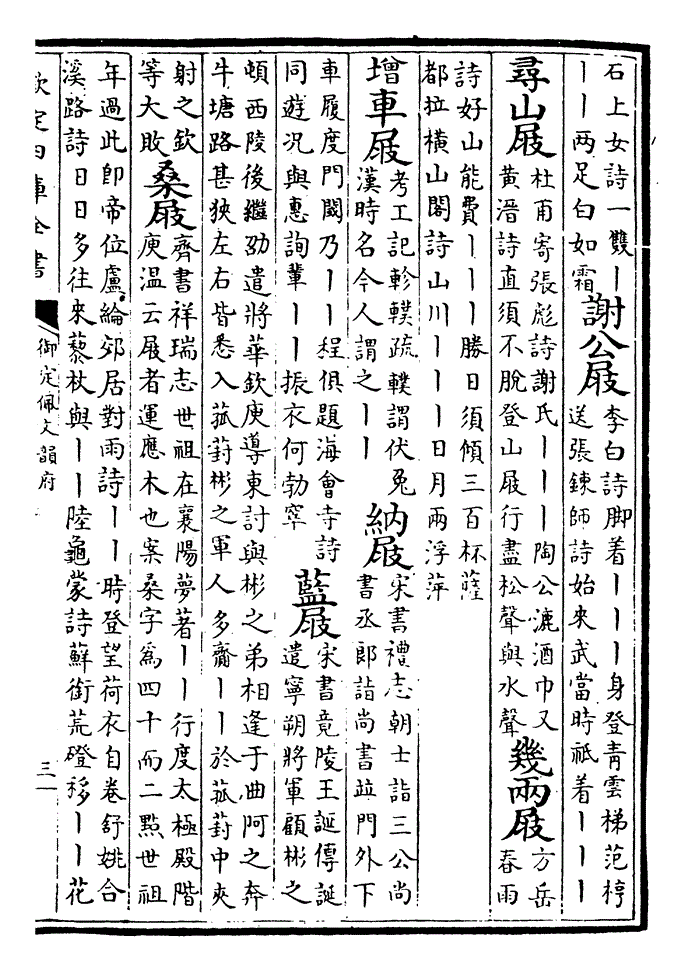 石上女詩一雙丨
丨丨兩足白如霜
謝公屐
李白詩脚着丨丨丨身登青雲梯范梈
送張鍊師詩始來武當時祇着丨丨丨
尋山屐
杜甫寄張彪詩謝氏丨丨丨陶公漉酒巾又
黄溍詩直須不脫登山屐行盡松聲與水聲
幾兩屐
方岳
春雨
詩好山能費丨丨丨勝日須傾三百杯薩
都拉橫山閣詩山川丨丨丨日月兩浮萍
增車屐
考工記軫轐疏轐謂伏兔
漢時名今人謂之丨丨
納屐
宋書禮志朝士詣三公尚
書丞郎詣尚書並門外下
車履度門閾乃丨丨程俱題海會寺詩
同遊况與惠詢輩丨丨振衣何勃窣
藍屐
宋書竟陵王誕傳誕
遣寧朔將軍顧彬之
頓西陵後繼劭遣將華欽庾導東討與彬之弟相逢于曲阿之奔
牛塘路甚狹左右皆悉入菰葑彬之軍人多齎丨丨於菰葑中夾
射之欽
等大敗
桑屐
齊書祥瑞志世祖在襄陽夢著丨丨行度太極殿階
庾温云屐者運應木也案桑字為四十而二點世祖
年過此即帝位盧綸郊居對雨詩丨丨時登望荷衣自卷舒姚合
溪路詩日日多往來藜杖與丨丨陸龜蒙詩蘚銜荒磴移丨丨花
欽定四庫全書
御定佩文韻府
三一